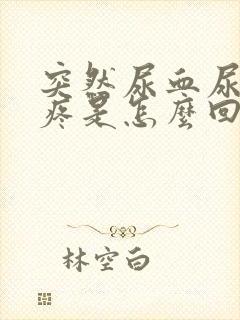 突然尿血尿
疼是怎麼回
林空白